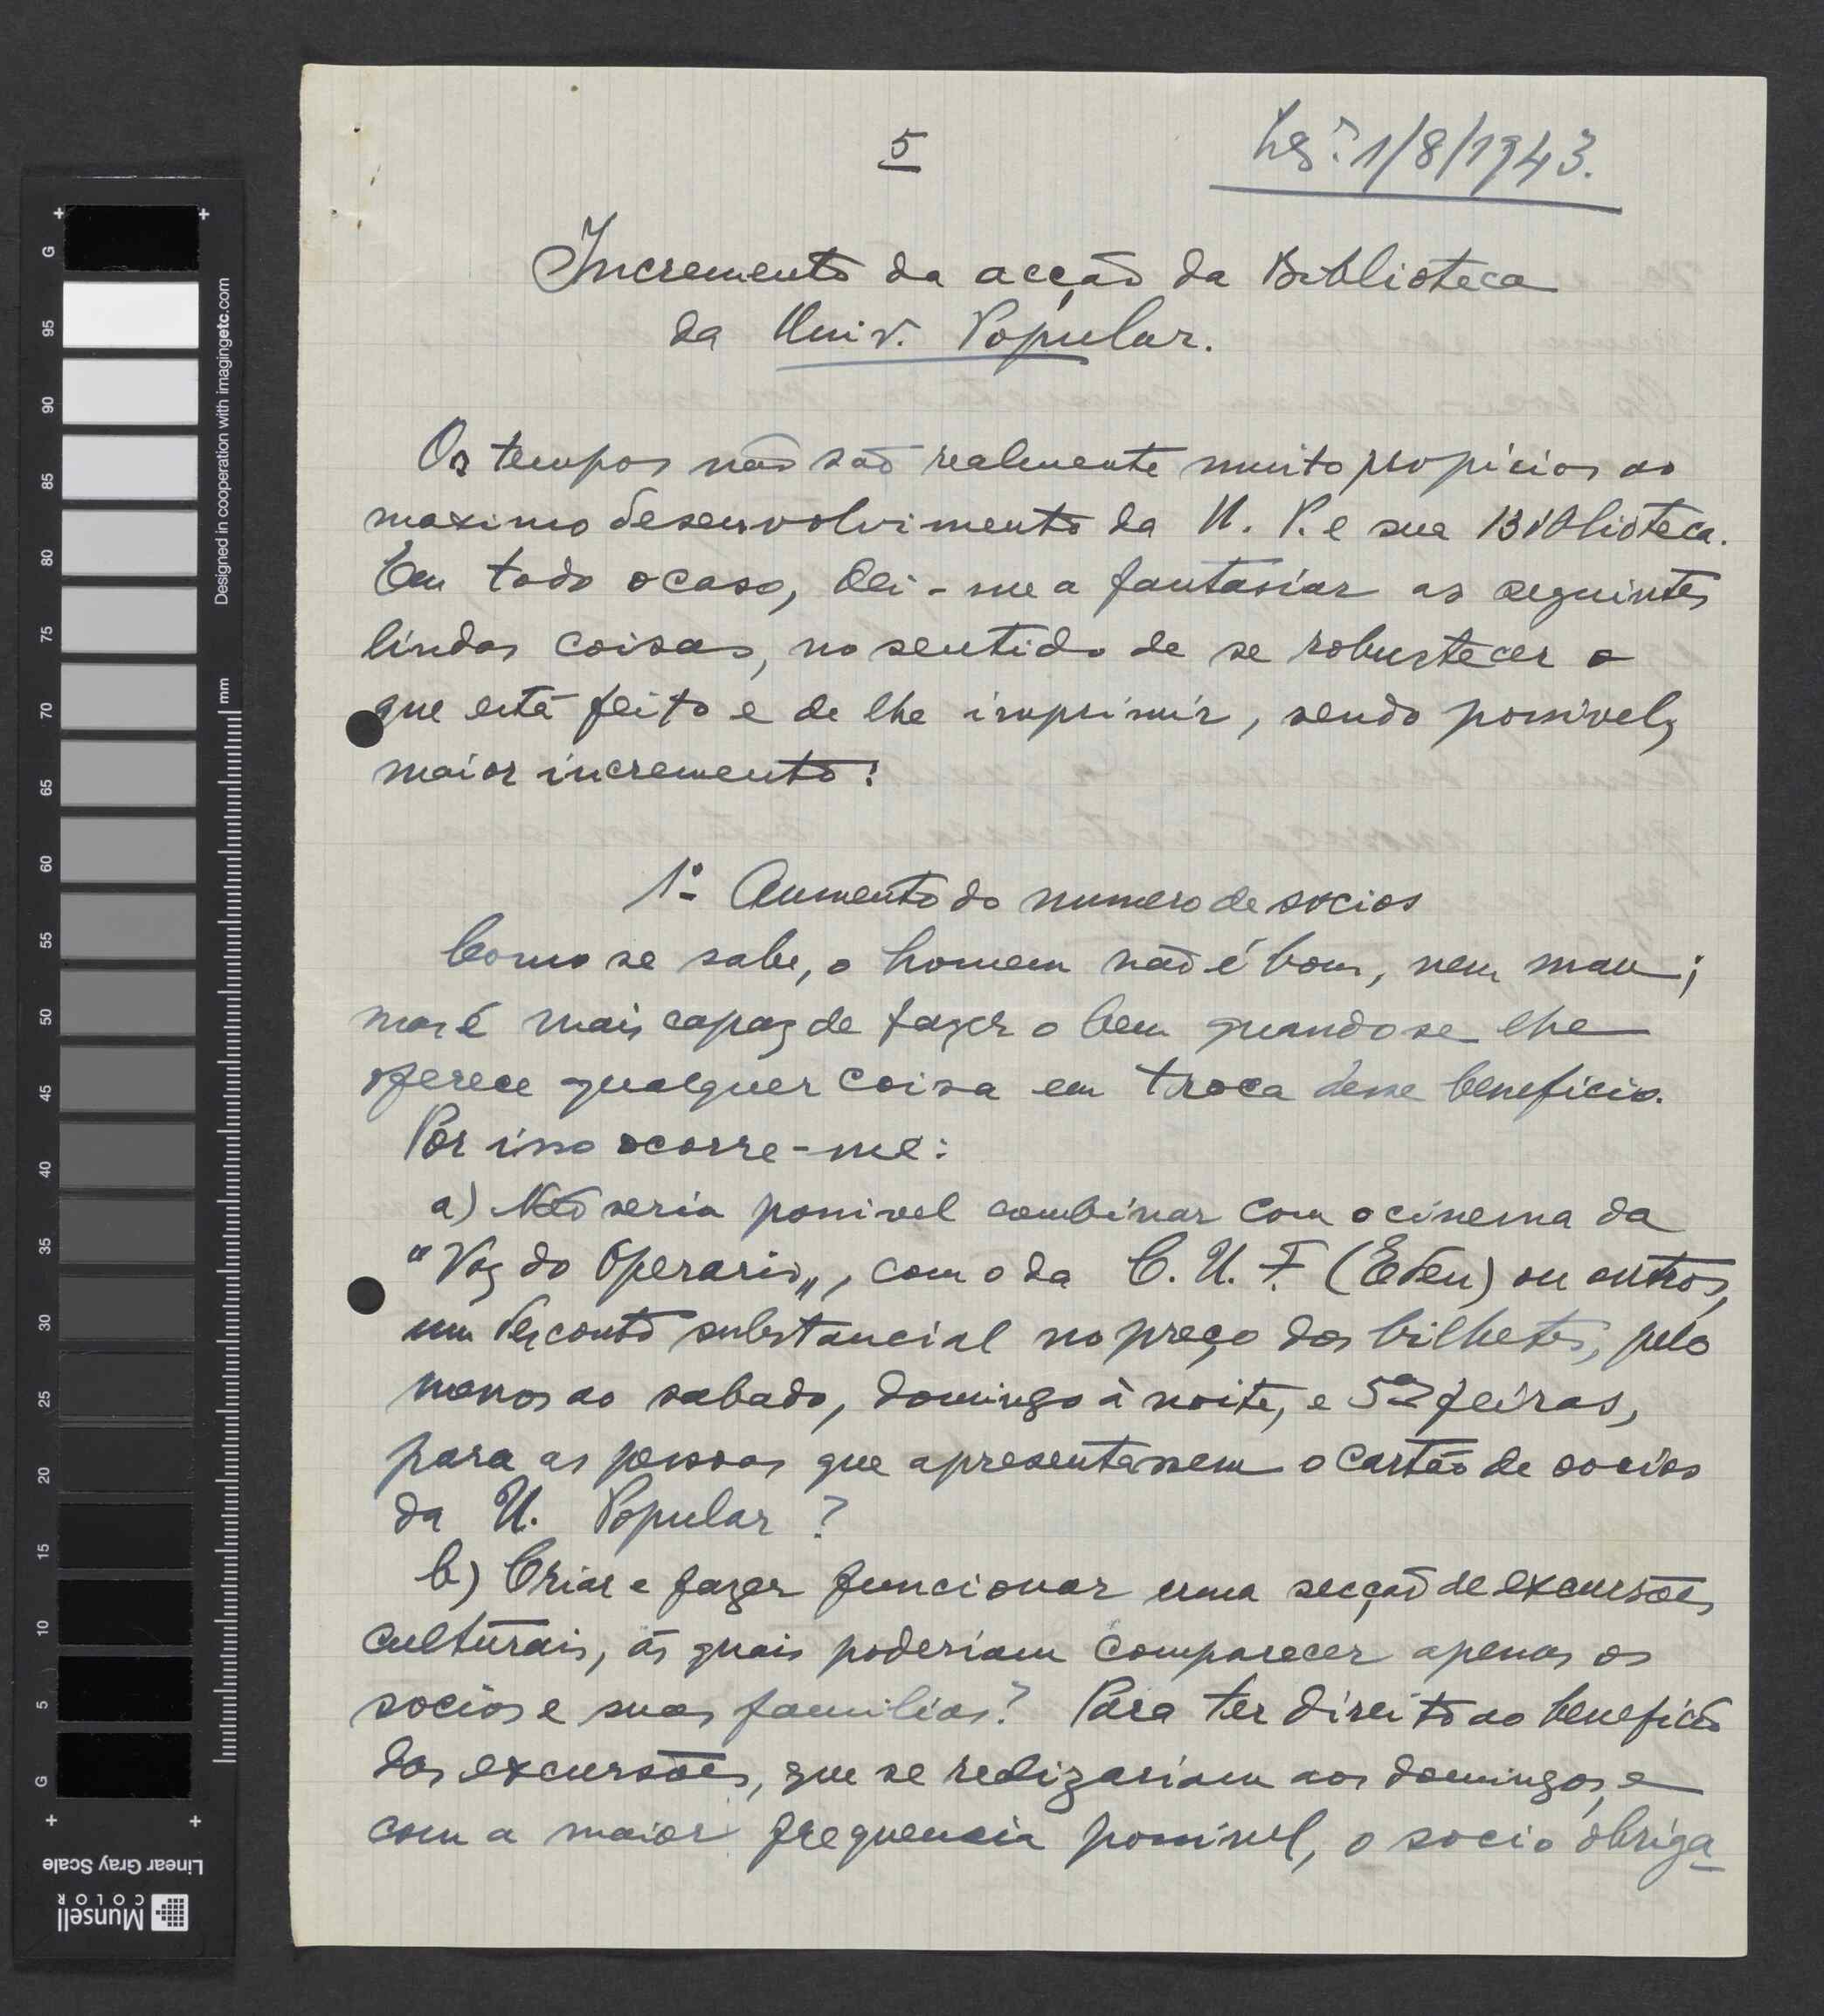 5
Lxª 1/8/1943.
Incremento da acção da Biblioteca
da Univ. Popular.
Os tempos não são realmente muito propicios ao
maximo desenvolvimento da U. P. e sua Biblioteca.
Em todo o caso, dei-me a fantasiar as seguintes
lindas coisas, no sentido de se robustecer o
que está feito e de lhe imprimir, sendo possivel,
maior incremento:
1º Aumento do numero de socios
Como se sabe, o homem não é bom, nem mau;
mas é mais capaz de fazer o bem quando se lhe
oferece qualquer coisa em troca dêsse beneficio.
Por isso ocorre-me:
a) Não seria possivel combinar com o cinema da
"Voz do Operario„, com o da C. U. F. (Eden) ou outros,
um desconto substancial no preço dos bilhetes, pelo
menos ao sabado, domingo à noite, e 5as feiras,
para as pessoas que apresentassem o cartão de socios
da U. Popular?
b) Criar e fazer funcionar uma secção de excursões
culturais, ás quais poderiam comparecer apenas os
socios e suas familias? Para ter direito ao beneficio
das excursões, que se realizariam aos domingos, e
com a maior frequencia possivel, o socio obriga-
G
95
90
85
80
75
70
65
60
55
50
45
40
35
30
25
20
15
10
5
G
mm
Designed in cooperation with imagingetc.com
Linear Gray Scale
Munsell
COLOR